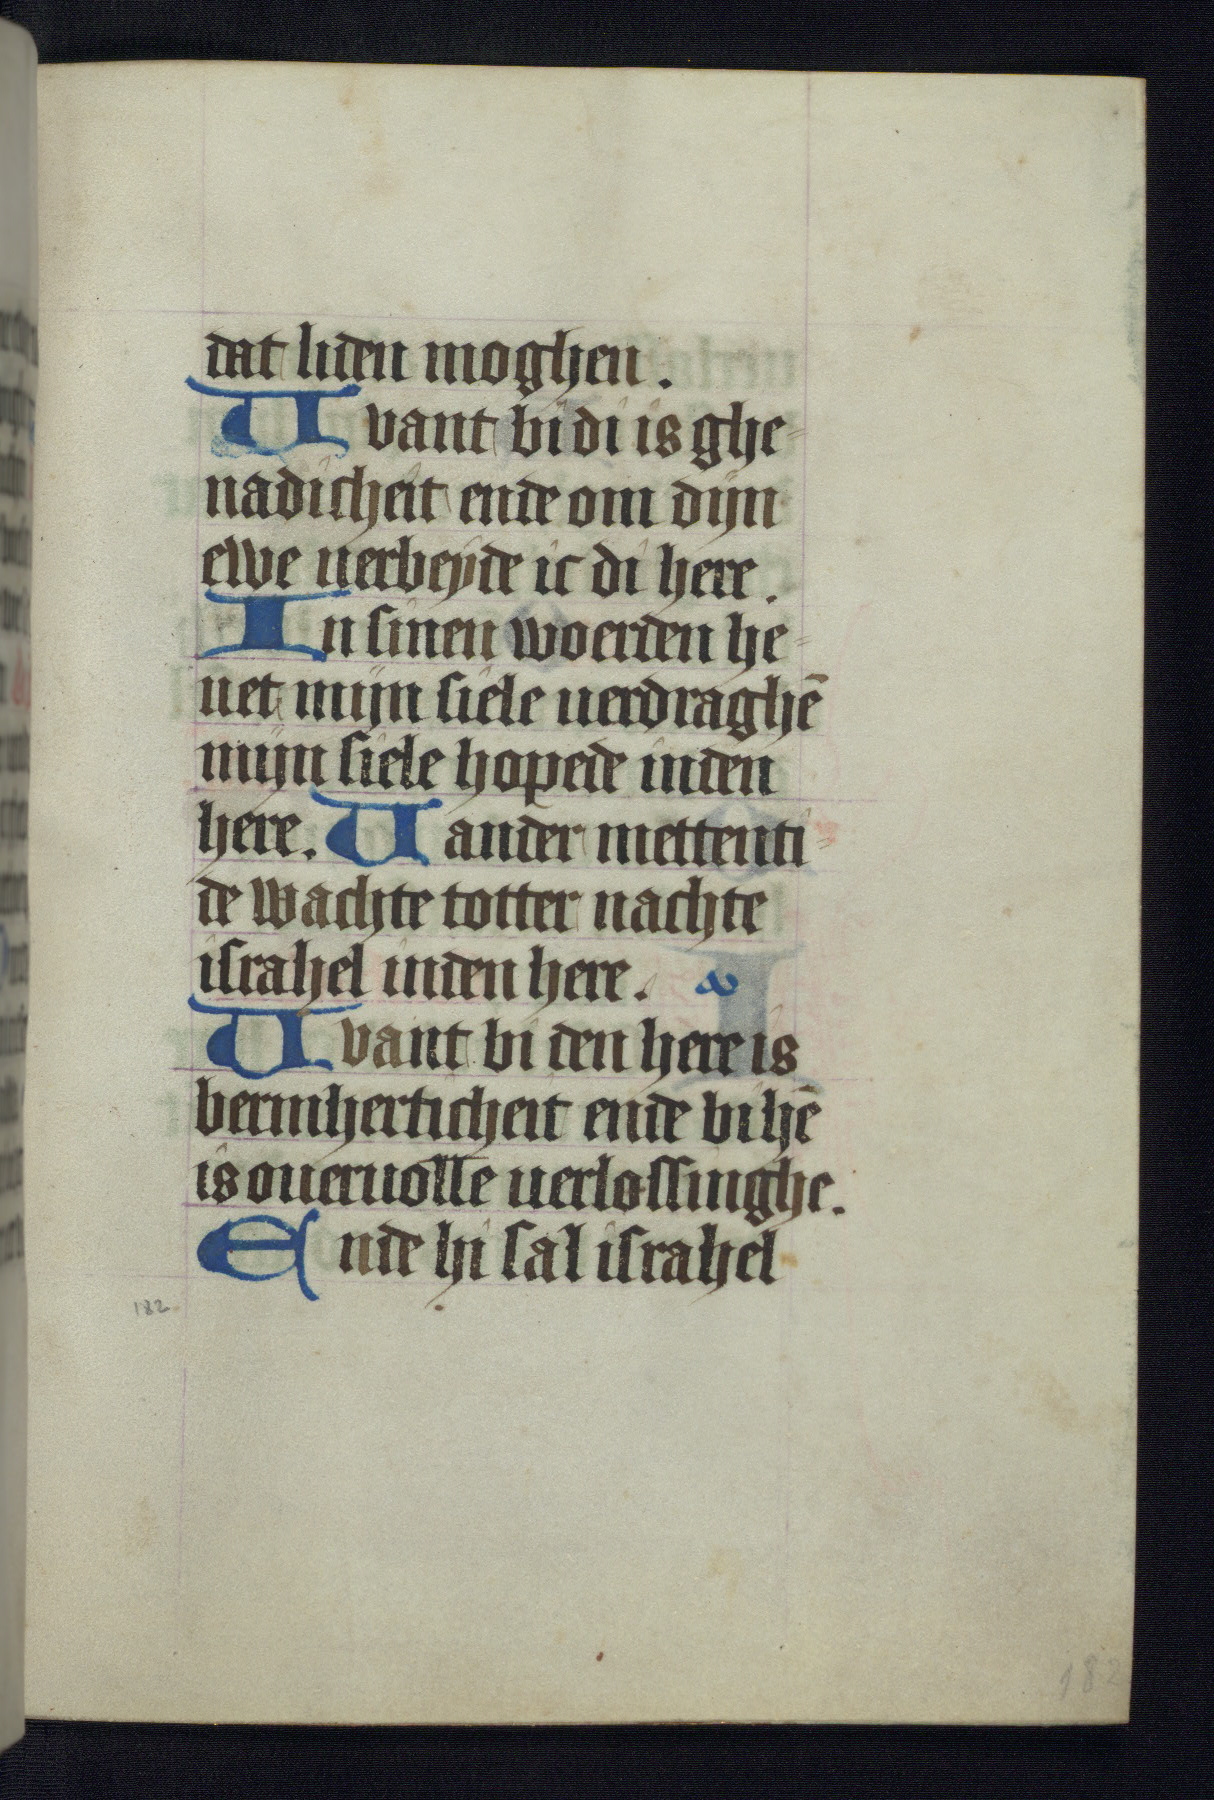 dat liden moghen.
Uvant bi di is ghe-
nadicheit ende om dijn
ewe verbeyde ic di here.
In sinen woerden he-
uet mijn siele uerdraghē
mijn siele hopede inden
here. Uander mettenti-
de wachte totter nachte
israhel inden here.
Uvant bi den here is
bermherticheit ende bi hē
is ouervolle uerlossinghe.
Ende hi sal israhel
182
182